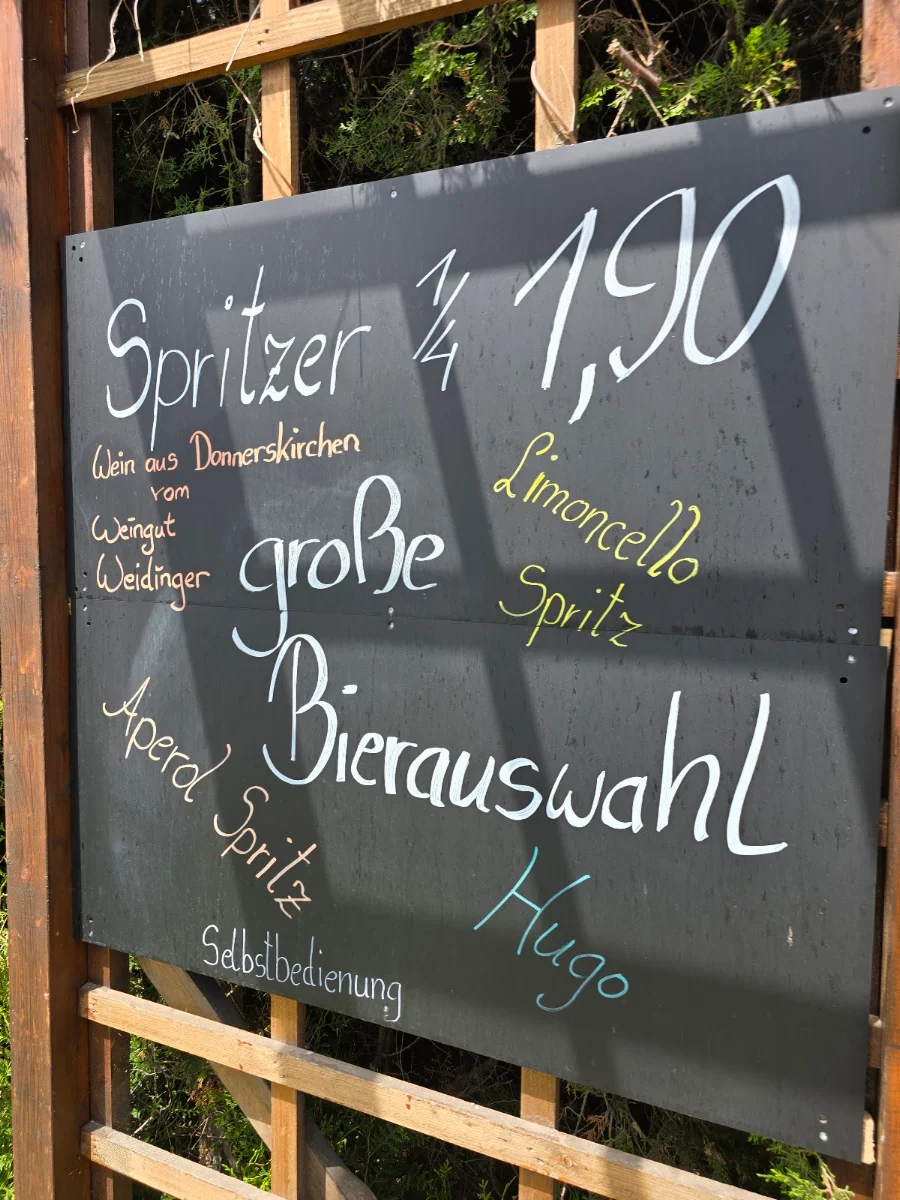 Spritzer 1/4 1,90
Wein aus Donnerskirchen
vom
Weingut
Weidinger
Limoncello
Spritz
große
Bierauswahl
Aperol
Spritz
Hugo
Selbstbedienung